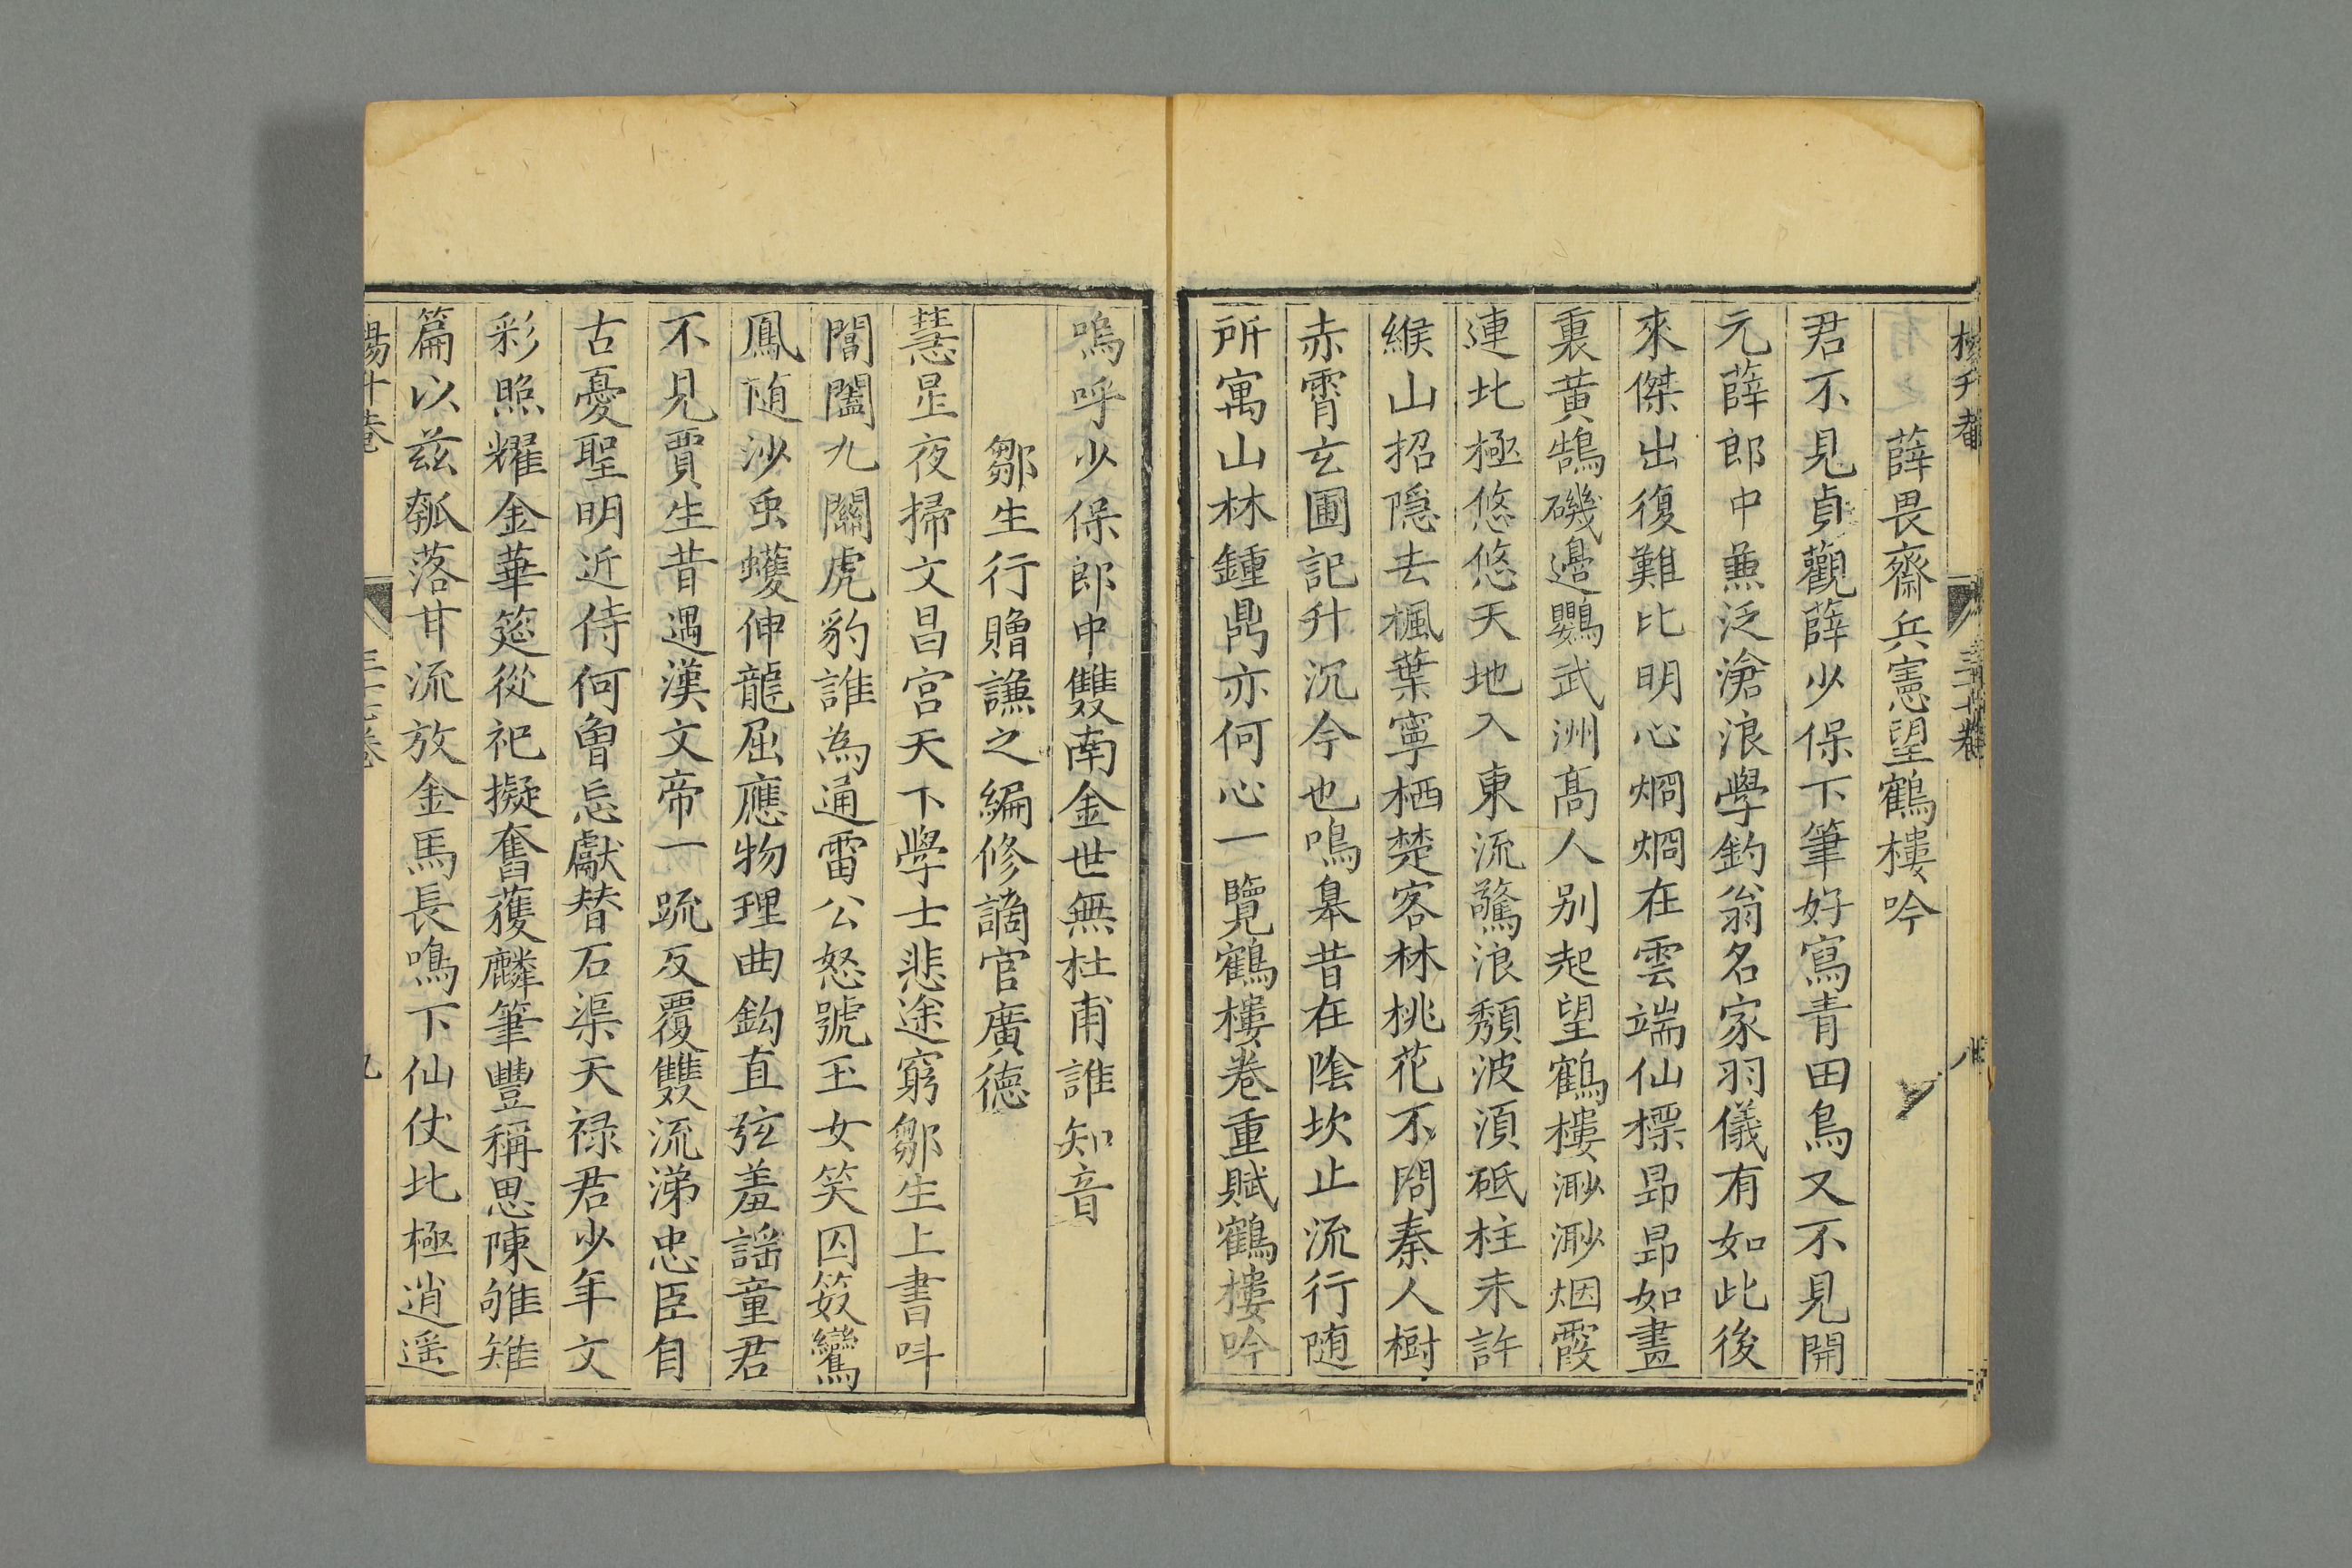 薛畏齋兵憲望鶴樓吟
君不見貞觀薛少保下筆好寫青田鳥又不見開
元薛郎中蕉泛滄浪學釣翁名家羽儀有如此後
來傑出復難比明心烱烱在雲端仙標昻昻如畫
裏黃鵠磯邉鸚武洲髙人别起望鶴樓渺渺烟霞
連北極悠悠天地入東流驚浪頽波湏砥柱未許
緱山招隠去楓葉寧栖楚客林桃花不問秦人樹
赤霄玄圃記升沉今也鳴皋昔在陰坎止流行随
所寓山林鍾鼎亦何心一覽鶴樓卷重賦鶴樓吟
嗚呼少保郎中雙南金世無杜甫誰知音
鄒生行贈謙之編修謫官廣德
慧星夜掃文昌宫天下學士悲途窮鄒生上書呌
閶闔九關虎豹誰為通雷公怒號玉女笑囚笯鸞
鳳随沙虫蠖伸龍屈應物理曲鈎直弦羞謡童君
不見賈生昔遇漢文帝一䟽反覆雙流涕忠臣自
古憂聖明近侍何曾忘獻替石渠天禄君少年文
彩照耀金華筵從祀擬奮獲麟筆豐稱思陳雊雉
篇以兹瓠落甘流放金馬長鳴下仙仗比極逍遥